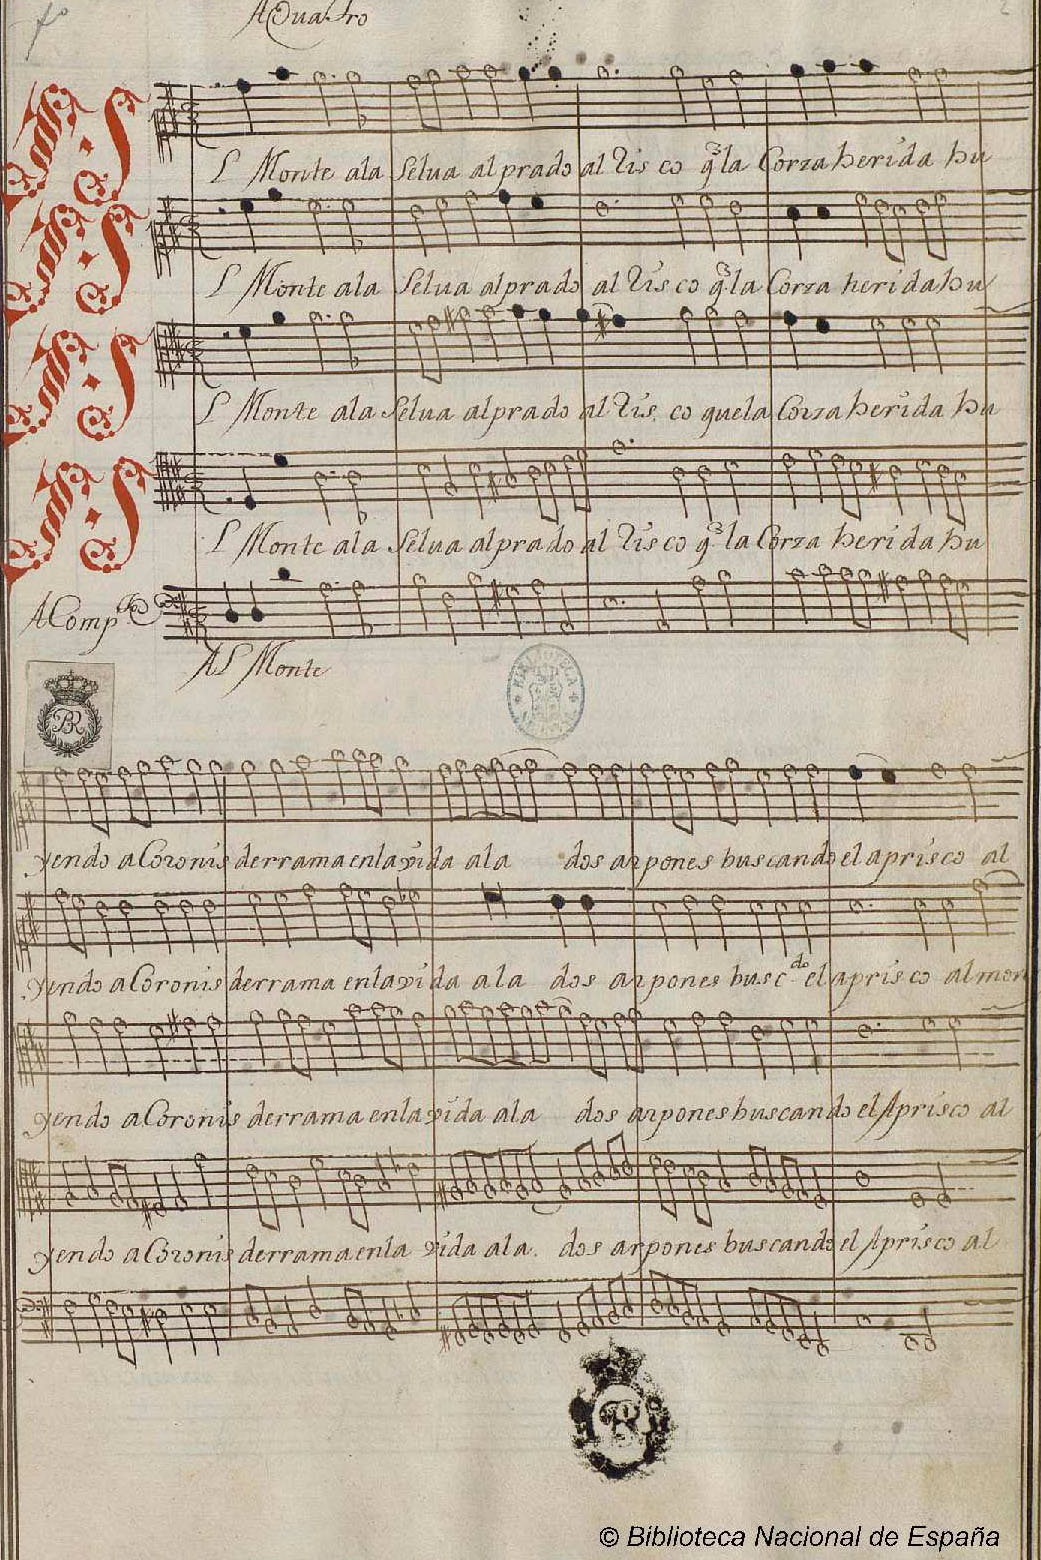 A Quatro
Al Monte ala Selua al prado al risco q̃ la Corza herida hu
Al Monte ala Selua al prado al risco q̃ la Corza herida hu
Al Monte ala Selua al prado al risco que la Corza herida hu
Al Monte ala Selua al prado al risco q̃ la Corza herida hu
AComp.to
Al Monte
BR
BIBLIOTECA
yendo a Coronis derrama en la vida ala dos arpones buscando el aprisco al
yendo a Coronis derrama en la vida ala dos arpones busc.do el aprisco al mon
yendo a Coronis derrama en la vida ala dos arpones buscando el Aprisco al
yendo a Coronis derrama en la vida ala dos arpones buscando el Aprisco al
© Biblioteca Nacional de España